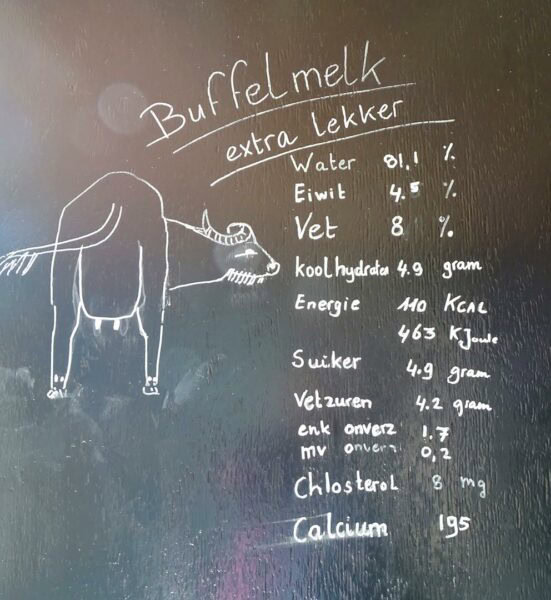 Buffelmelk
extra lekker
Water 81,1 %
Eiwit 4.5 %
Vet 8 %
koolhydraten 4.9 gram
Energie 110 KCAL
463 KJoule
Suiker 4.9 gram
Vetzuren 4.2 gram
enk onverz 1.7
mv onverz 0,2
Chlosterol 8 mg
Calcium 195